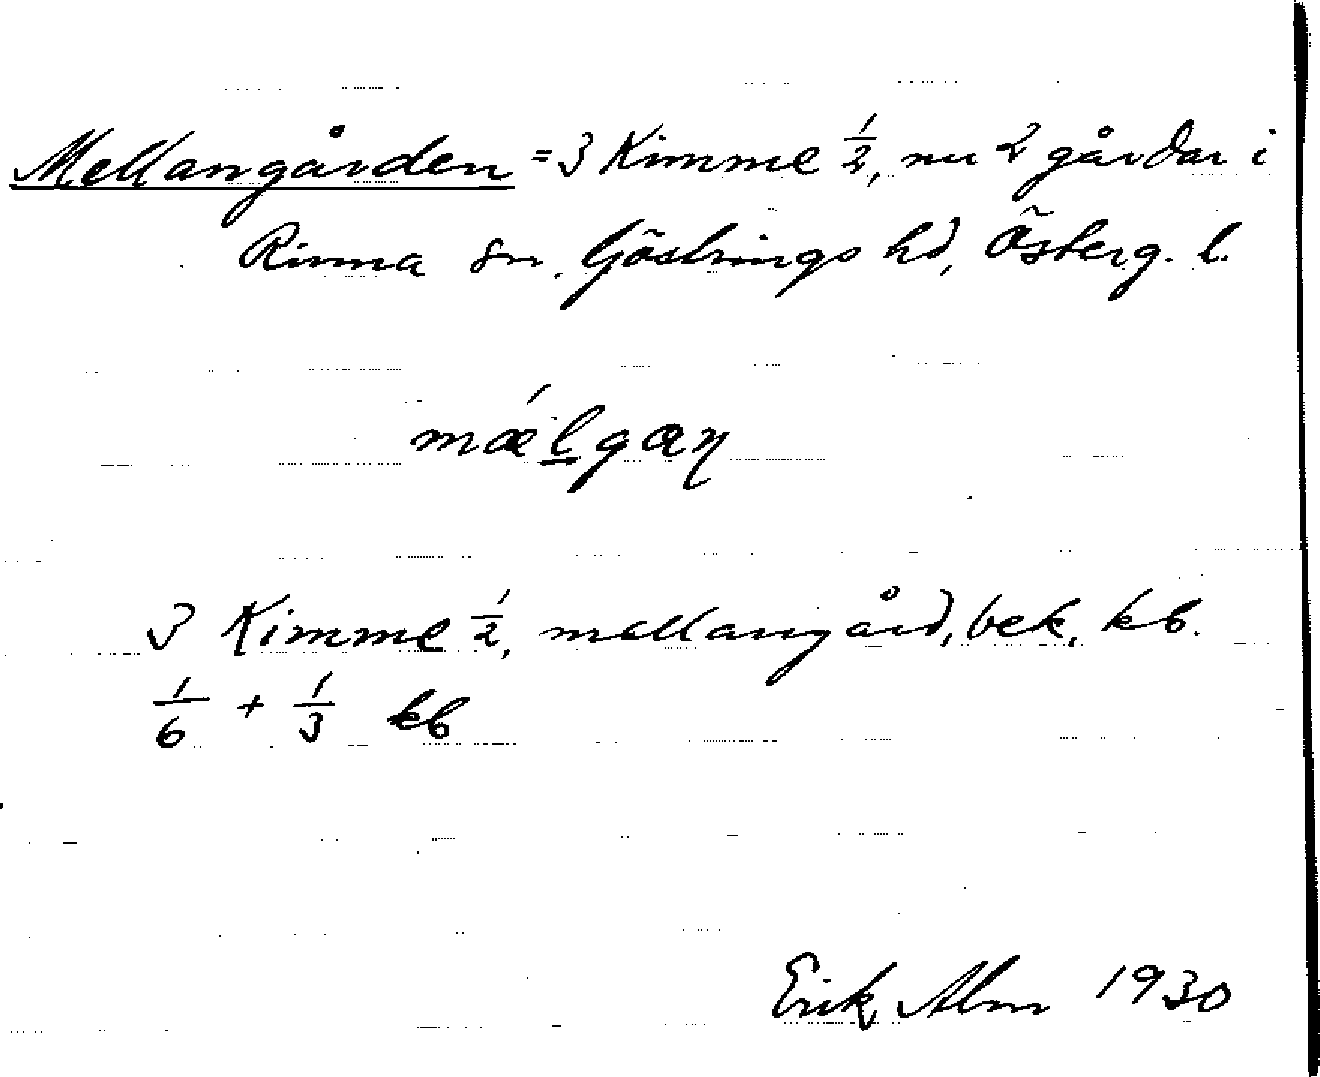 Mellangården = 3 Kimme 1/2, nu 2 gårdar i
Rinna sn. Göstrings hd, Österg. l.
mǽlgaŋ
3 Kimme 1/2, mellangård, bek. kb.
1/6 + 1/3 kb
Erik Alm 1930